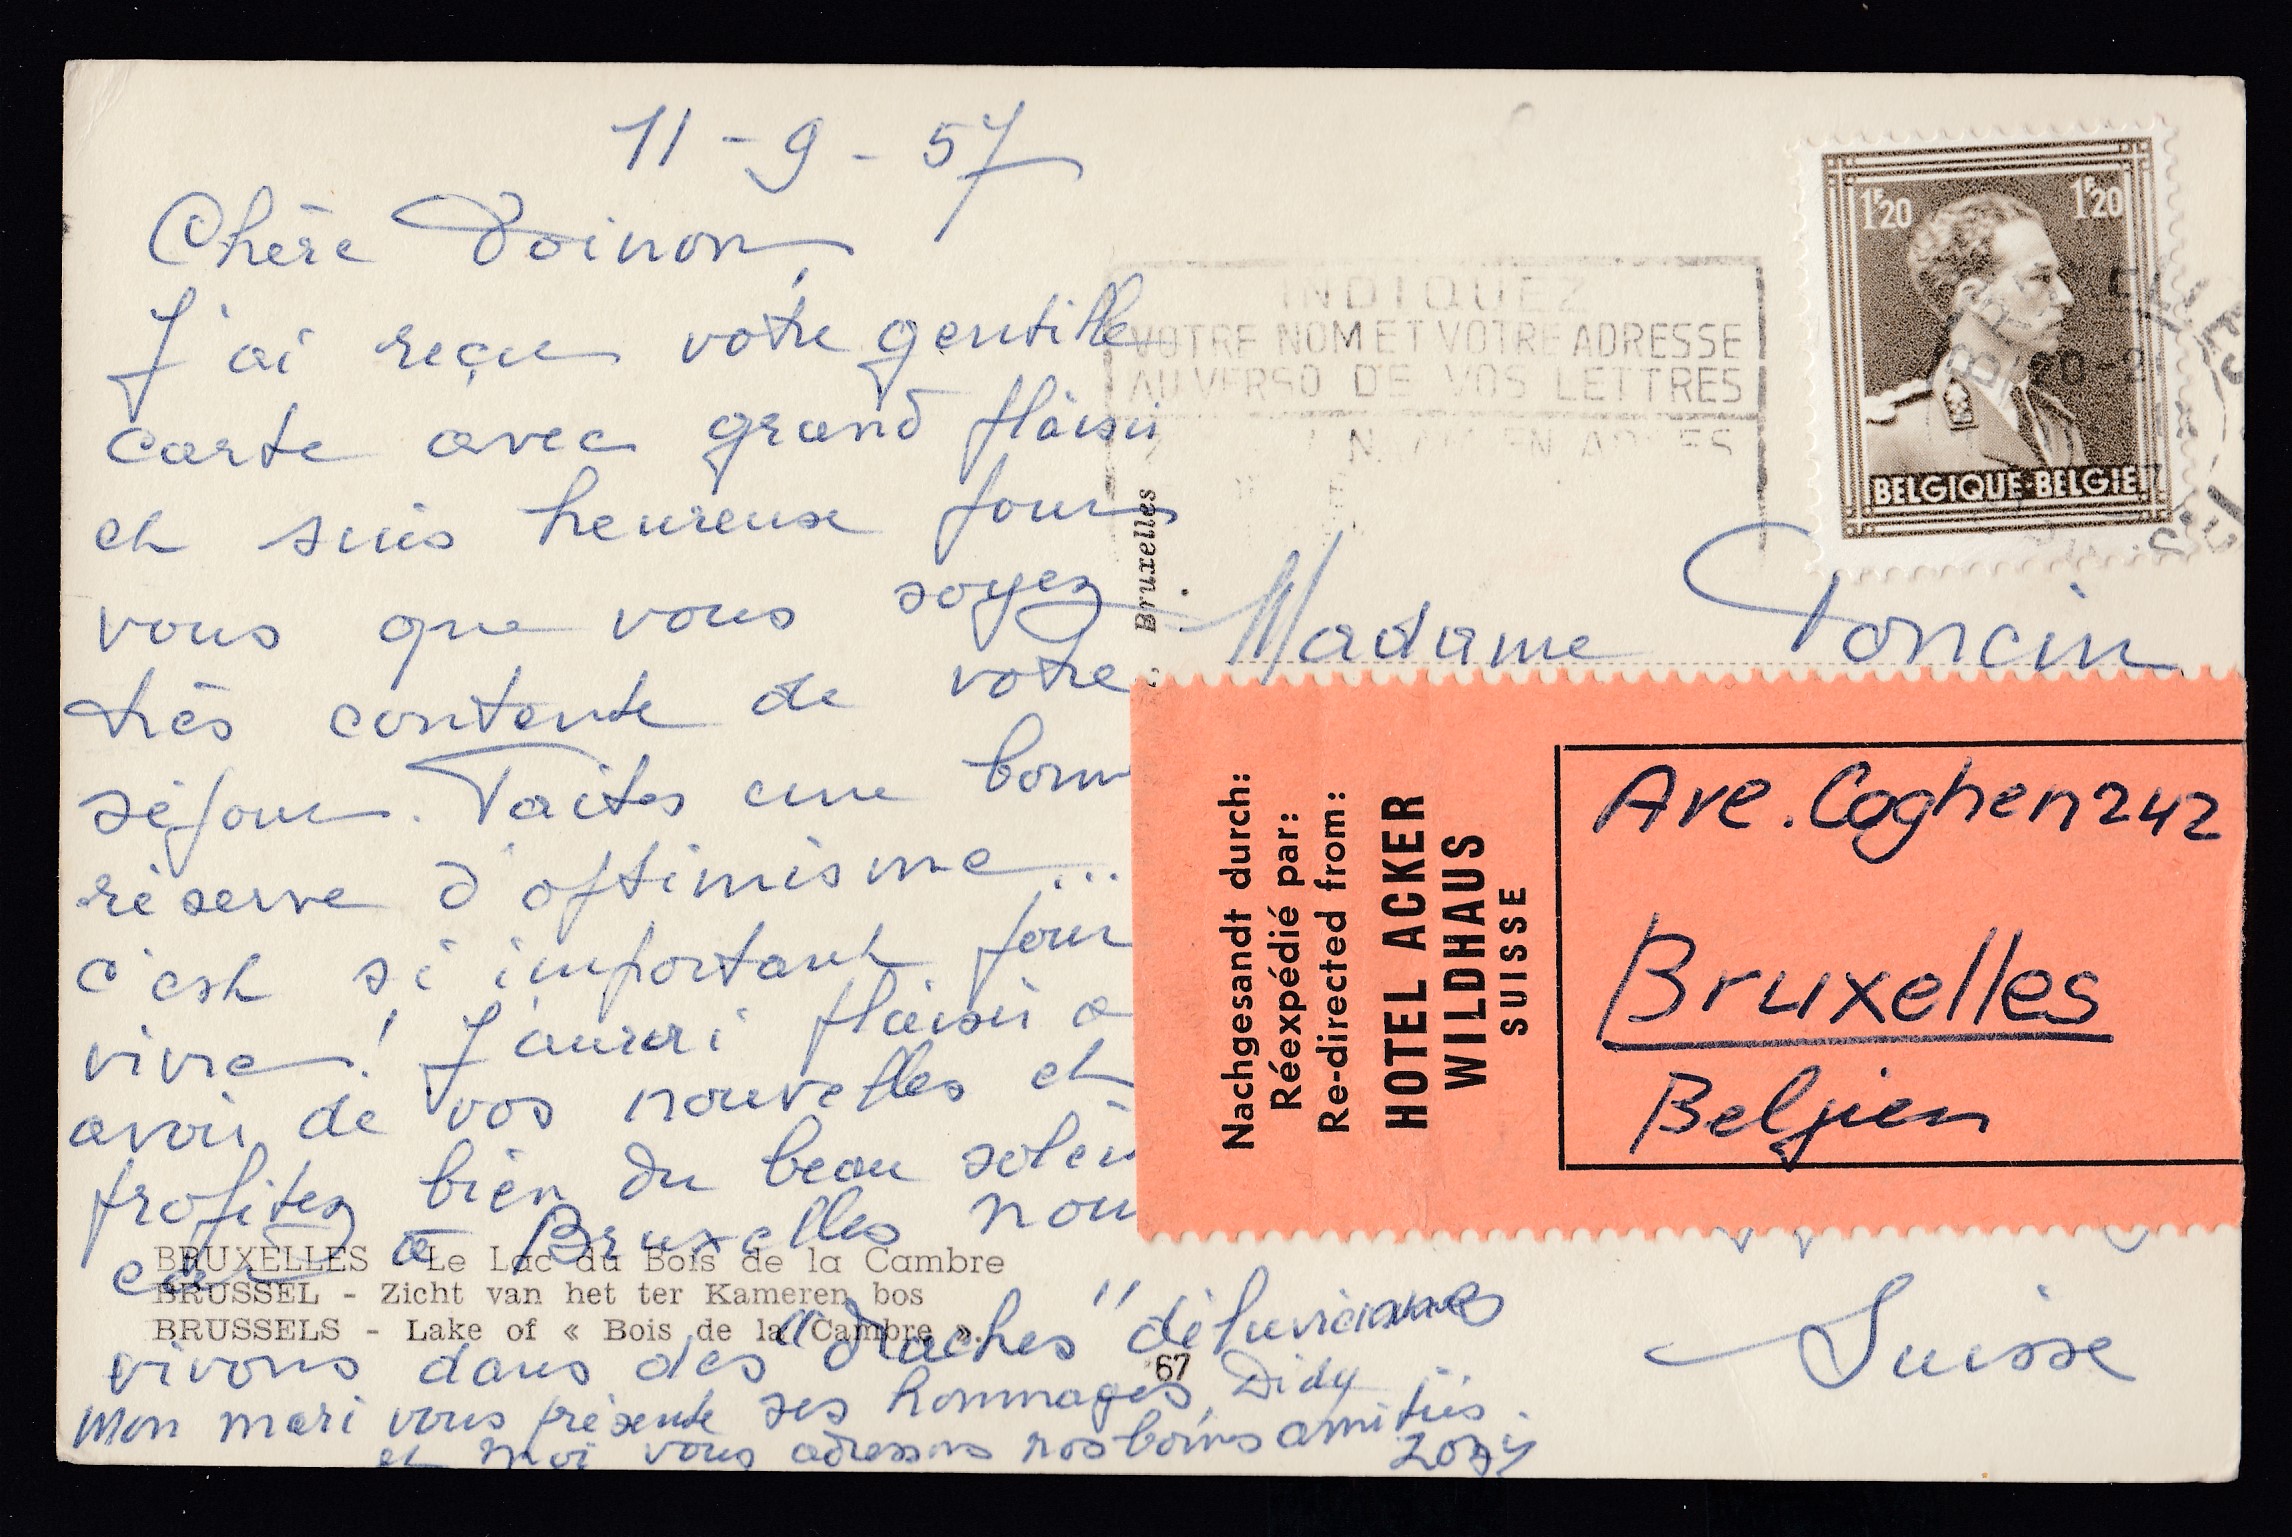 11-9-57
Chère Toinon,
J'ai reçu votre gentille
carte avec grand plaisir
et suis heureuse pour
vous que vous soyez
très contente de votre
séjour. Faites une bonne
réserve d'optimisme...
c'est si important pour
vivre! J'aurai plaisir à
avoir de vos nouvelles et
profitez bien du beau soleil
car à Bruxelles nous
vivons dans des "draches" diluviennes
Mon mari vous présente ses hommages, Didy
et moi vous adressons nos bonnes amitiés.
BRUXELLES - Le Lac du Bois de la Cambre
BRUSSEL - Zicht van het ter Kameren bos
BRUSSELS - Lake of « Bois de la Cambre ».
67
Bruxelles
INDIQUEZ
VOTRE NOM ET VOTRE ADRESSE
AU VERSO DE VOS LETTRES
1F20 1F20
BELGIQUE-BELGIE
Madame Poncin
Nachgesandt durch:
Réexpédié par:
Re-directed from:
HOTEL ACKER
WILDHAUS
SUISSE
Ave. Coghen 242
Bruxelles
Belgien
Suisse